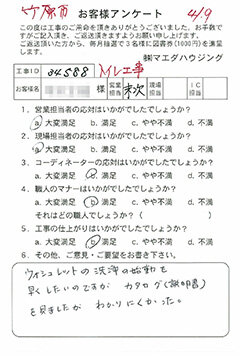 竹原市
お客様アンケート 4/9
この度は工事のご用命を頂きありがとうございました。お手数で
すがご記入頂き、ご返送頂きますようお願い申し上げます。
ご返送頂いた方から、毎月抽選で3名様に図書券(1000円)を進呈
します。
㈱マエダハウジング
工事ID 34588 トイレ工事
お客様名 様 営業担当 末次 現場担当 IC担当
1. 営業担当者の応対はいかがでしたでしょうか?
a. 大変満足 b. 満足 c. やや不満 d. 不満
2. 現場担当者の応対はいかがでしたでしょうか?
a. 大変満足 b. 満足 c. やや不満 d. 不満
3. コーディネーターの応対はいかがでしたでしょうか?
a. 大変満足 b. 満足 c. やや不満 d. 不満
4. 職人のマナーはいかがでしたでしょうか?
a. 大変満足 b. 満足 c. やや不満 d. 不満
それはどの職人でしょうか? ( )
5. 工事の仕上がりはいかがでしたでしょうか?
a. 大変満足 b. 満足 c. やや不満 d. 不満
6. その他、ご意見・ご要望をお書き下さい。
ウォシュレットの洗浄の始動を
早くしたいのですが カタログ(説明書)
を見ましたが わかりにくかった。